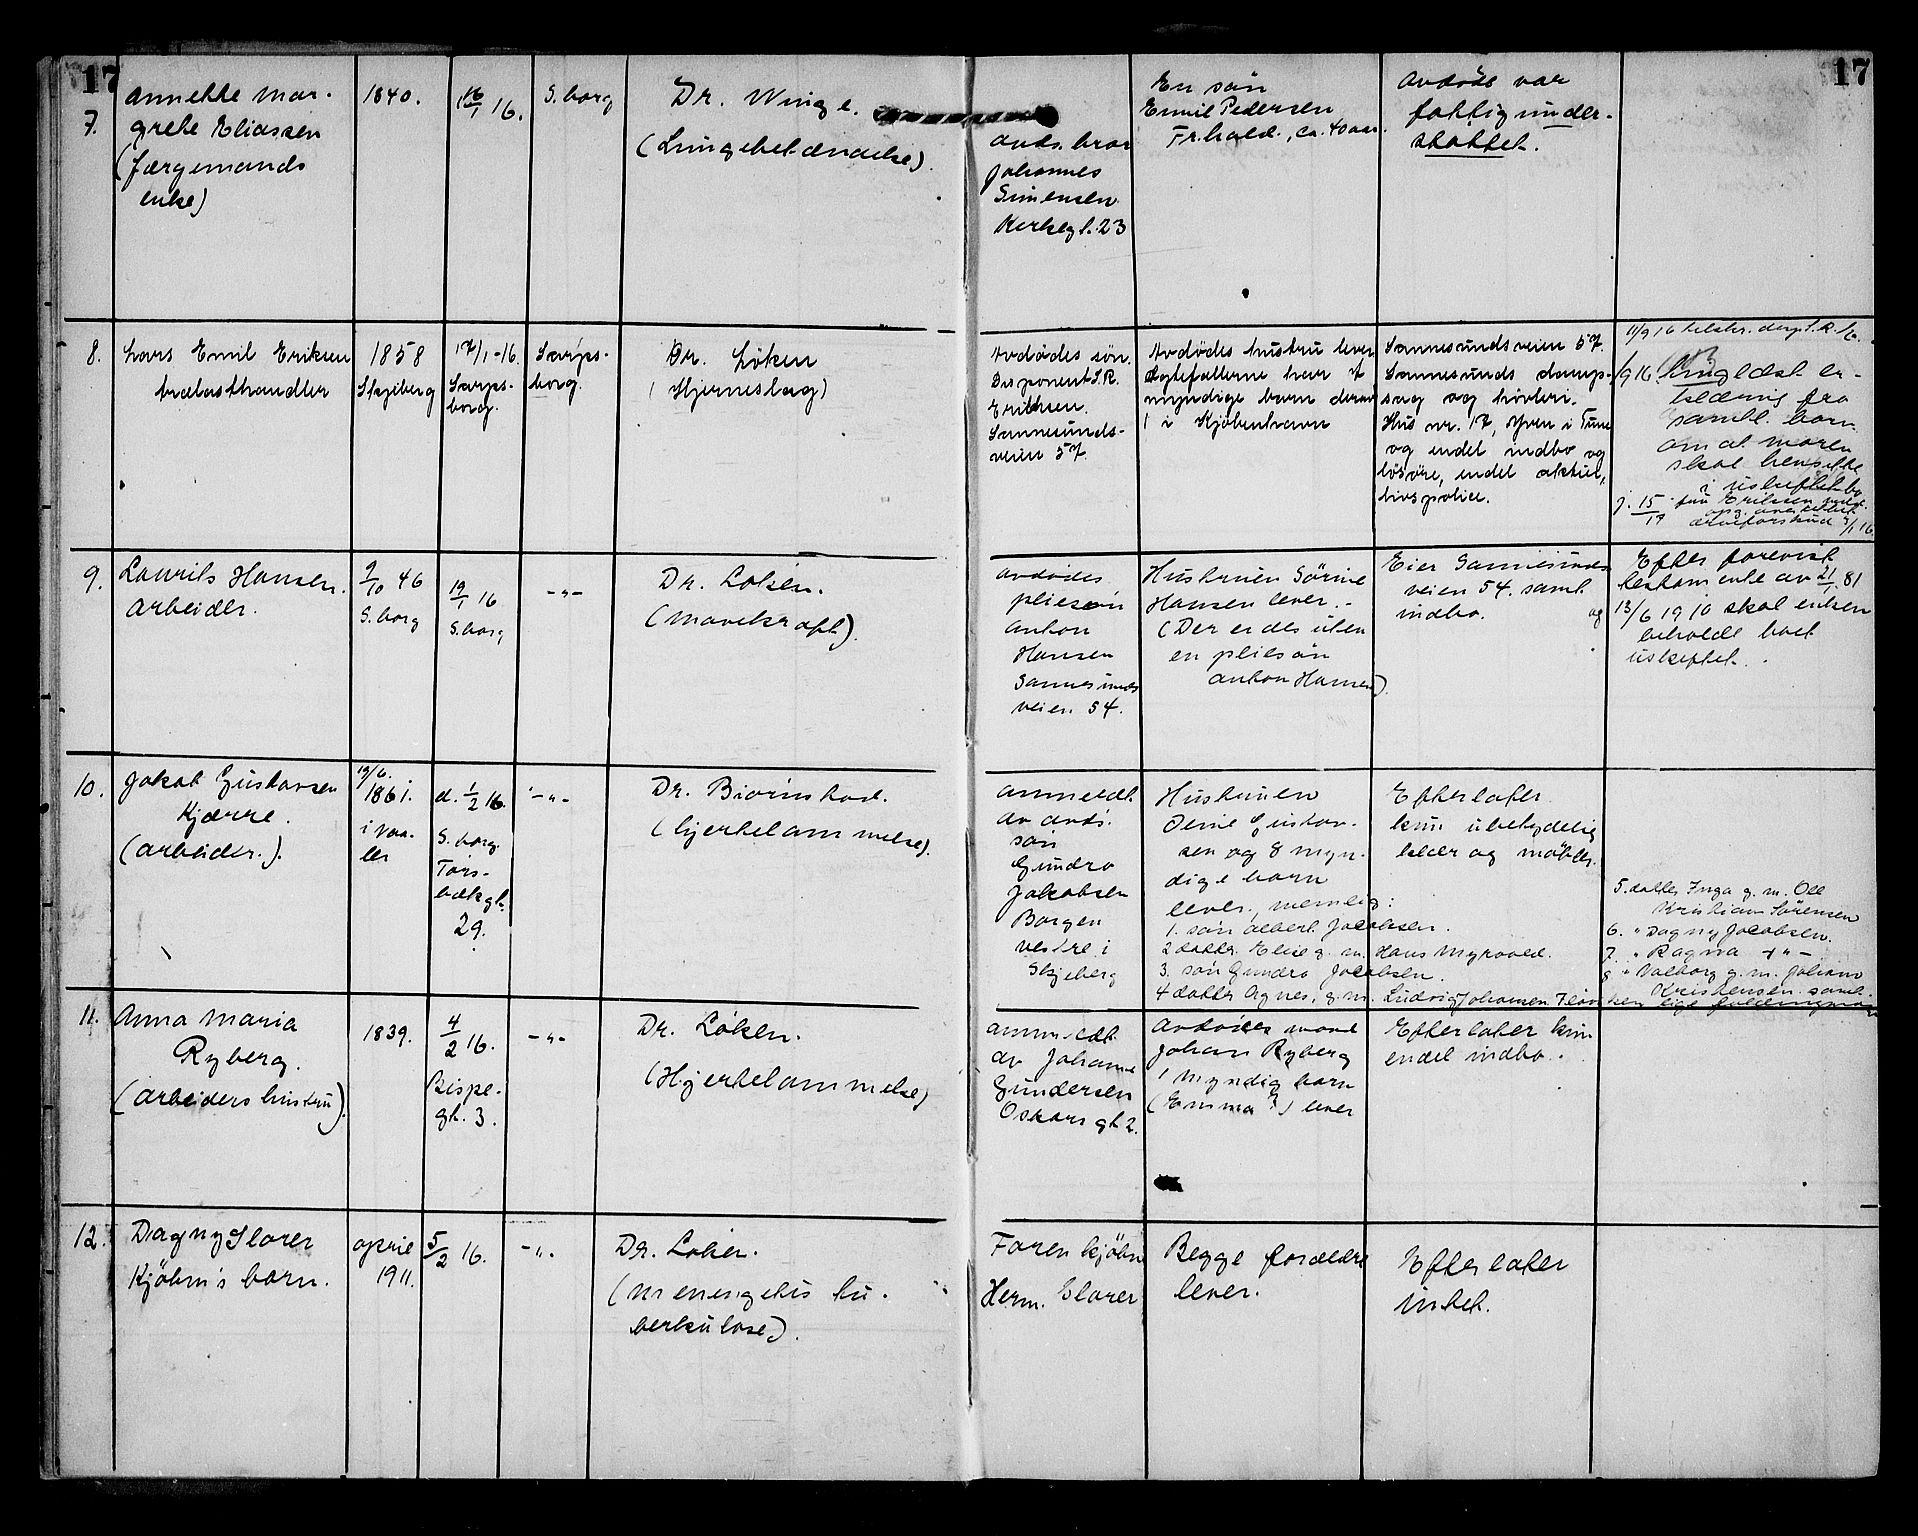 17
17
7.
Annette Mar-
grete Eliassen
(færgemands
enke)
1840.
16/1 16.
S.borg
Dr. Winge.
(Lungebetændelse).
Avds. bror
Johannes
Simensen
Kirkegt. 23
En søn
Emil Pedersen
Fr.hald., ca. 40 aar.
Avdöde var
fattigunder-
støttet.
8.
Lars Emil Eriksen
trælasthandler
1858
Skjeberg
17/1-16.
Sarps-
borg.
Sarps-
borg.
Dr. Löken
(Hjerneslag)
Avdödes sön.
Disponent S.R.
Eriksen.
Sannesunds-
veien 57.
Avdödes hustru lever
Egtefællerne har 7
myndige barn derav
1 i Kjöbenhavn
Sannesundsveien 57.
Sannesunds damp-
sag og hövleri.
Hus nr. 17, Yven i Tune
og endel indbo og
lösöre, endel aktier,
livspolice.
erklæring fra
samtl. barn
om at moren
skal hensitte
i uskiftet bo
j. 15/19 fru Eriksen
9.
Laurits Hansen.
Arbeider.
9/10 46
S.borg
19/1 16
S.borg
-"-
Dr. Løken.
(Mavekræft).
Avdödes
pliesön
Anton
Hansen
Sannesunds
veien 54.
Hustruen Sörine
Hansen lever.-
(Der er des uten
en pliesön
Anton Hansen).
Eier Sannesunds
veien 54. samt
indbo.
Efter forevist
testamente av 21/1 81
og
13/6 1910 skal enken
beholde boet
uskiftet.
10.
Jakob Gustavsen
Kjærre.
(arbeider.).
19/6.
1861.
i Vaa-
ler
d. 1/2 16.
S.borg.
Tors-
bækgt.
29.
-"-
Dr. Biörnstad.
(hjertelammelse).
Anmeldt.
av avds.
sön
Gundro
Jakobsen
Borgen
vestre i
Skjeberg
Hustruen
Oline Gustav-
sen og 8 myn-
dige barn
lever, nemlig:
1. sön Albert Jacobsen.
2 datter Elise g. m. Hans Myrvold.
3. sön Gundro Jacobsen.
4 datter Agnes, g.m. Ludvig Johansen
Efterlater
kun ubetydelig
klær og möbler.
5. datter Inga g. m. Ole
Kristian Sörensen
6. " Dagny Jacobsen.
7. " Ragna -"-
8 " Valborg g. m. Johan
Kristensen
11.
Anna Maria
Ryberg.
(arbeiders hustru).
1839.
4/2 16.
Bispe-
gt. 3.
-"-
Dr. Løken.
(Hjertelammelse)
Anmeldt.
av Johanne
Gundersen
Oskars gt 2.
Avdödes mand
Johan Ryberg
1 myndig barn
(Emma ?) lever
Efterlater kun
endel indbo.
12.
Dagny Slorer
Kjöhn's barn.
April
1911.
5/2 16.
-"-
Dr. Løken.
(meningitis tu-
berkulose).
Faren Kjöhn
Herm. Slorer
Begge forældre
lever.
Efterlater
intet.